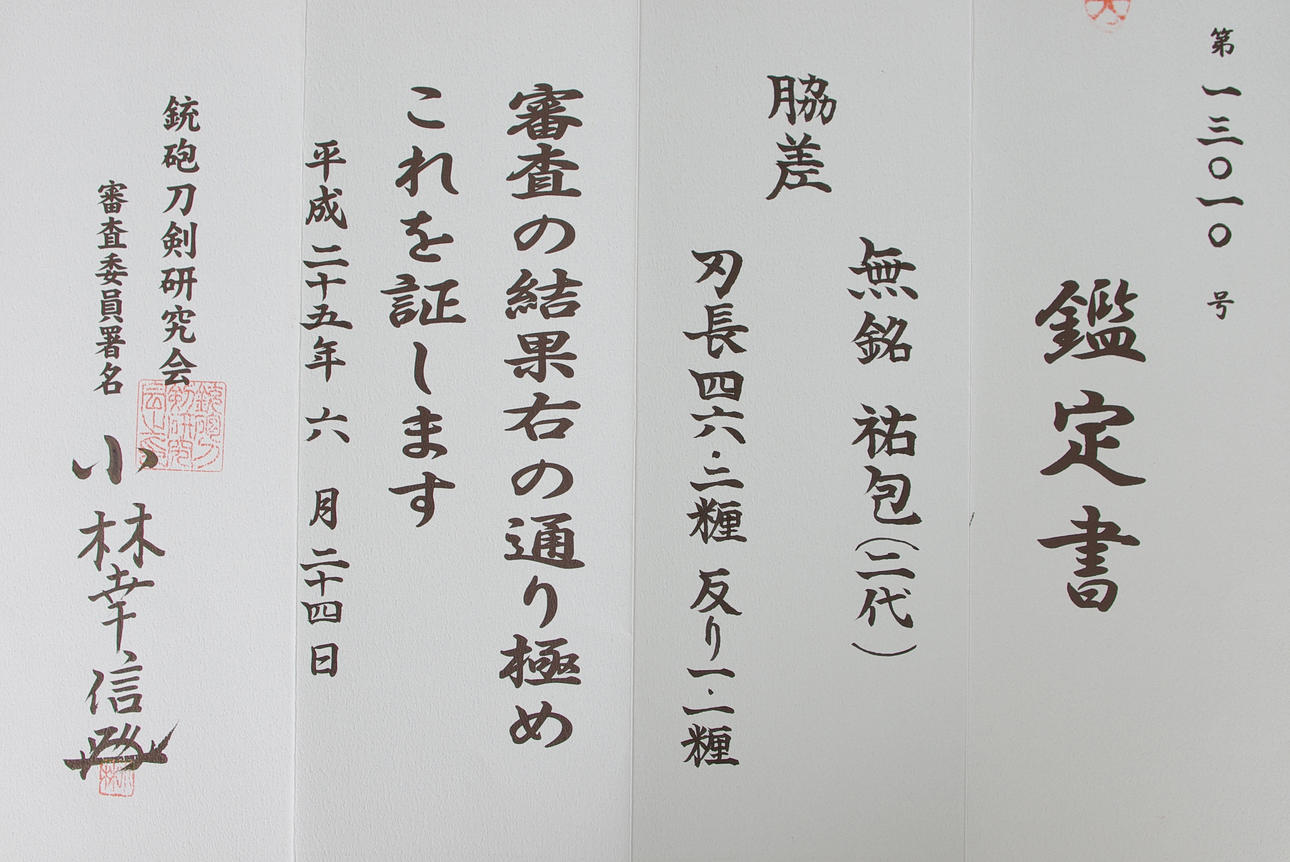 第一三〇一〇号
鑑定書
脇差
無銘 祐包(二代)
刃長四六・二糎 反り一・一糎
審査の結果右の通り極め
これを証します
平成二十五年 六 月 二十四日
銃砲刀剣研究会
審査委員署名
小林幸信